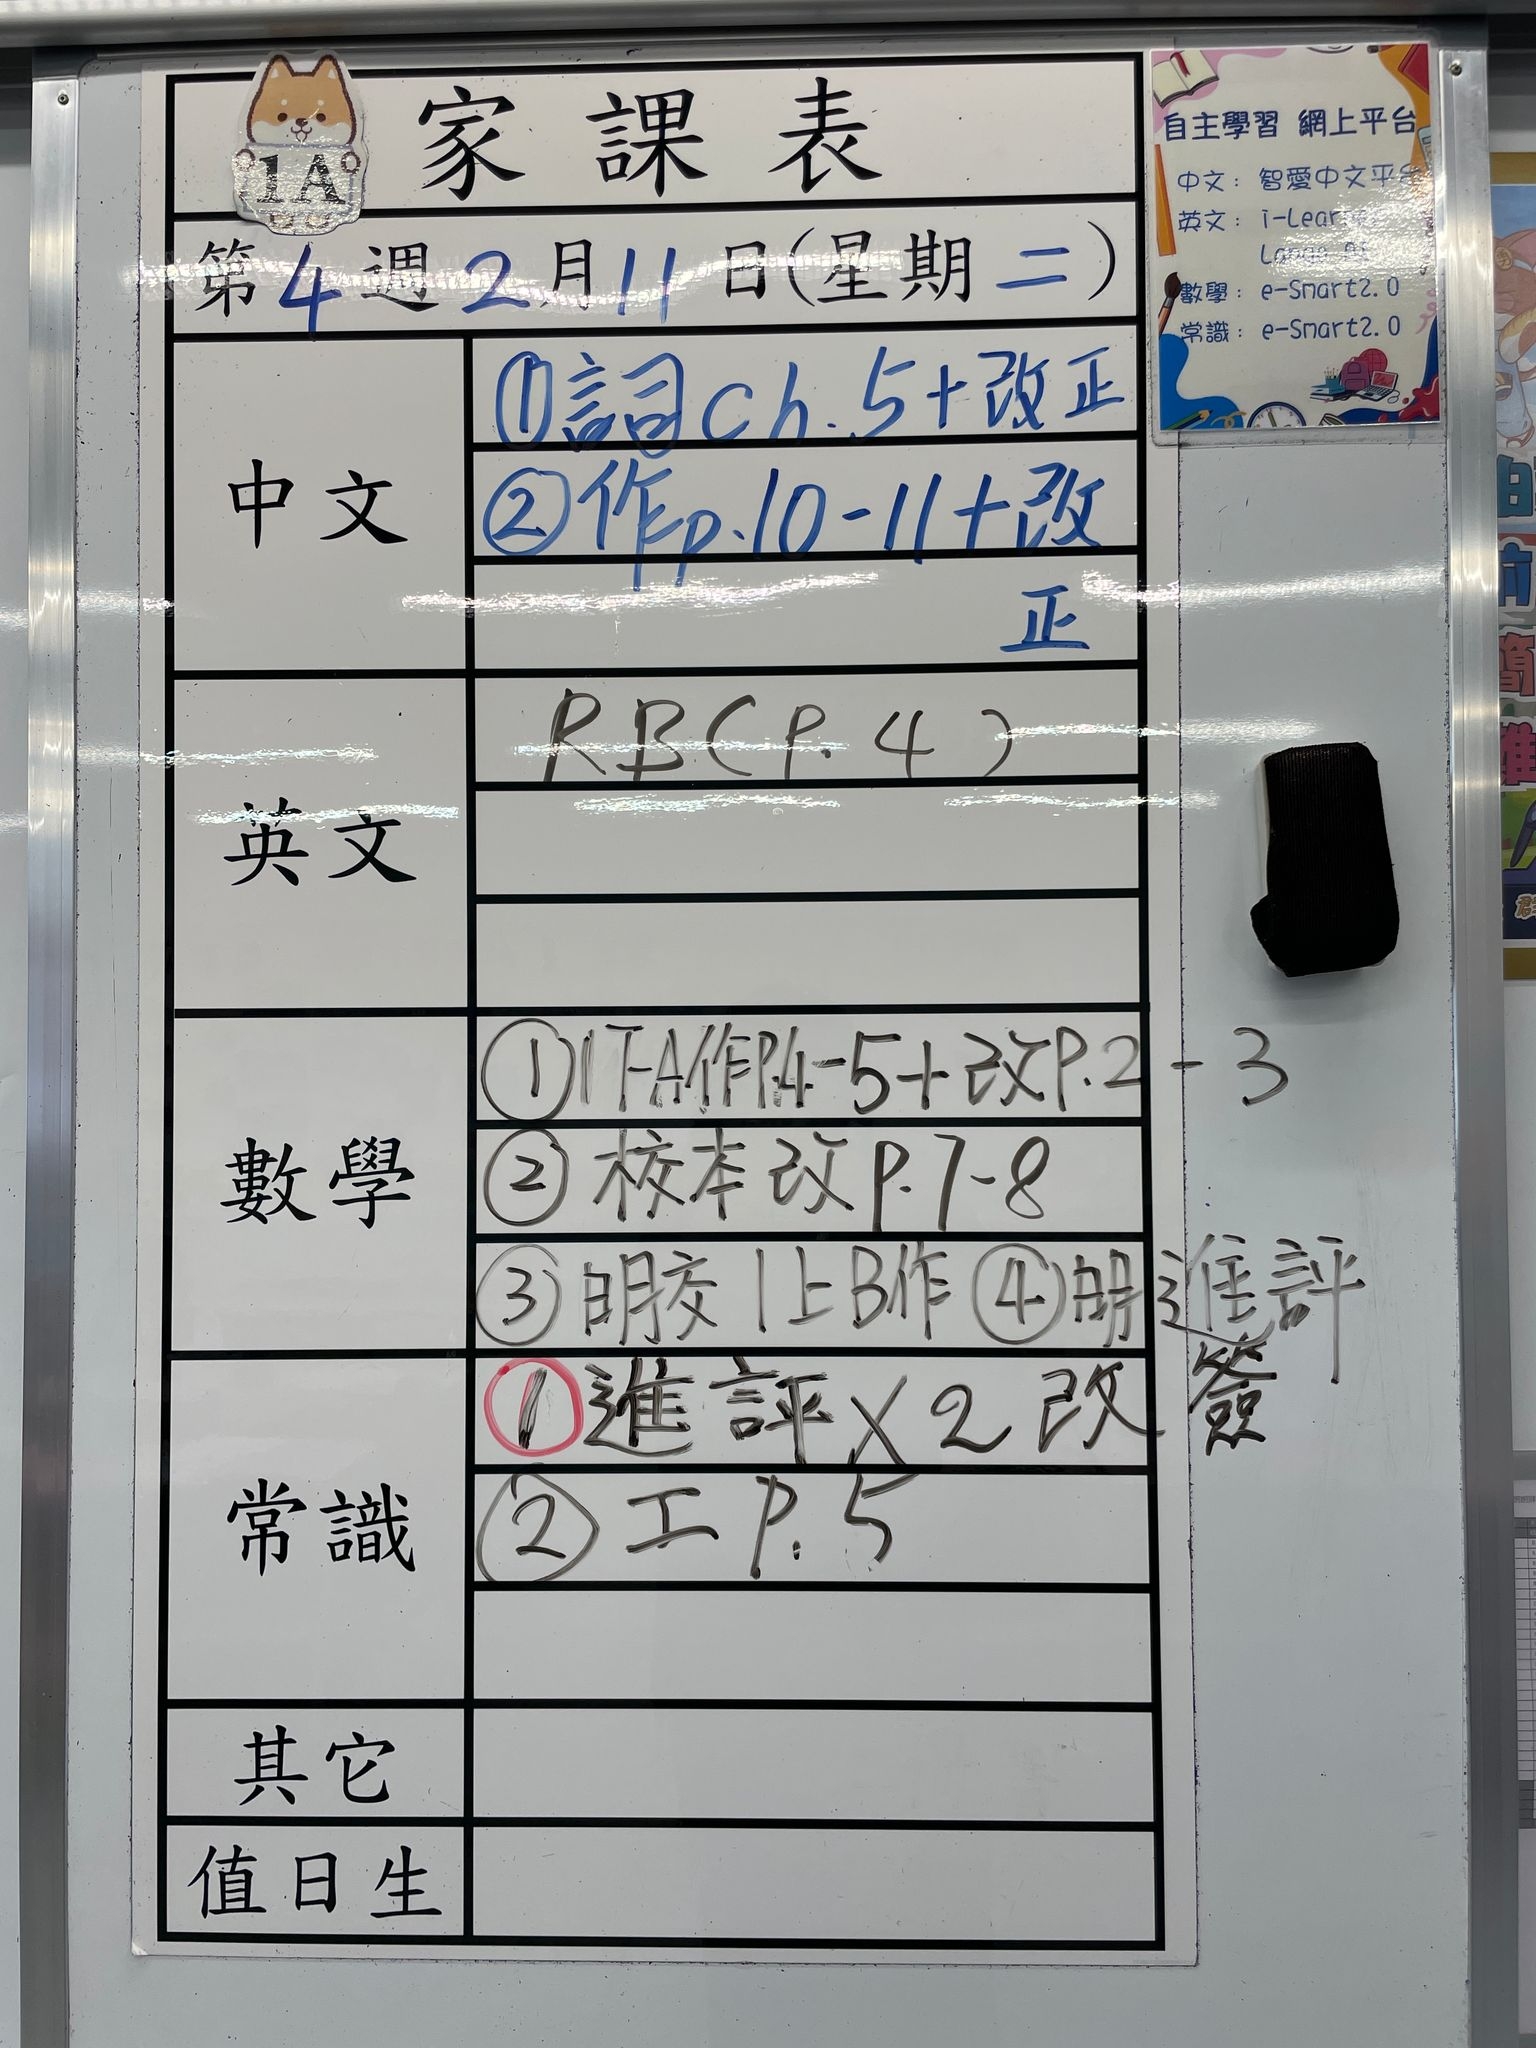 1A
家課表
第4週2月11日(星期二)
中文
①詞ch.5+改正
②作p.10-11+改
正
英文
RB(P.4)
數學
①1下A作P.4-5+改P.2-3
②校本改P.7-8
③明交1上B作 ④明進評
簽
常識
①進評×2改
②工P.5
其它
值日生
自主學習 網上平台
中文: 智愛中文平台
英文: i-Learner
數學: e-Smart2.0
常識: e-Smart2.0